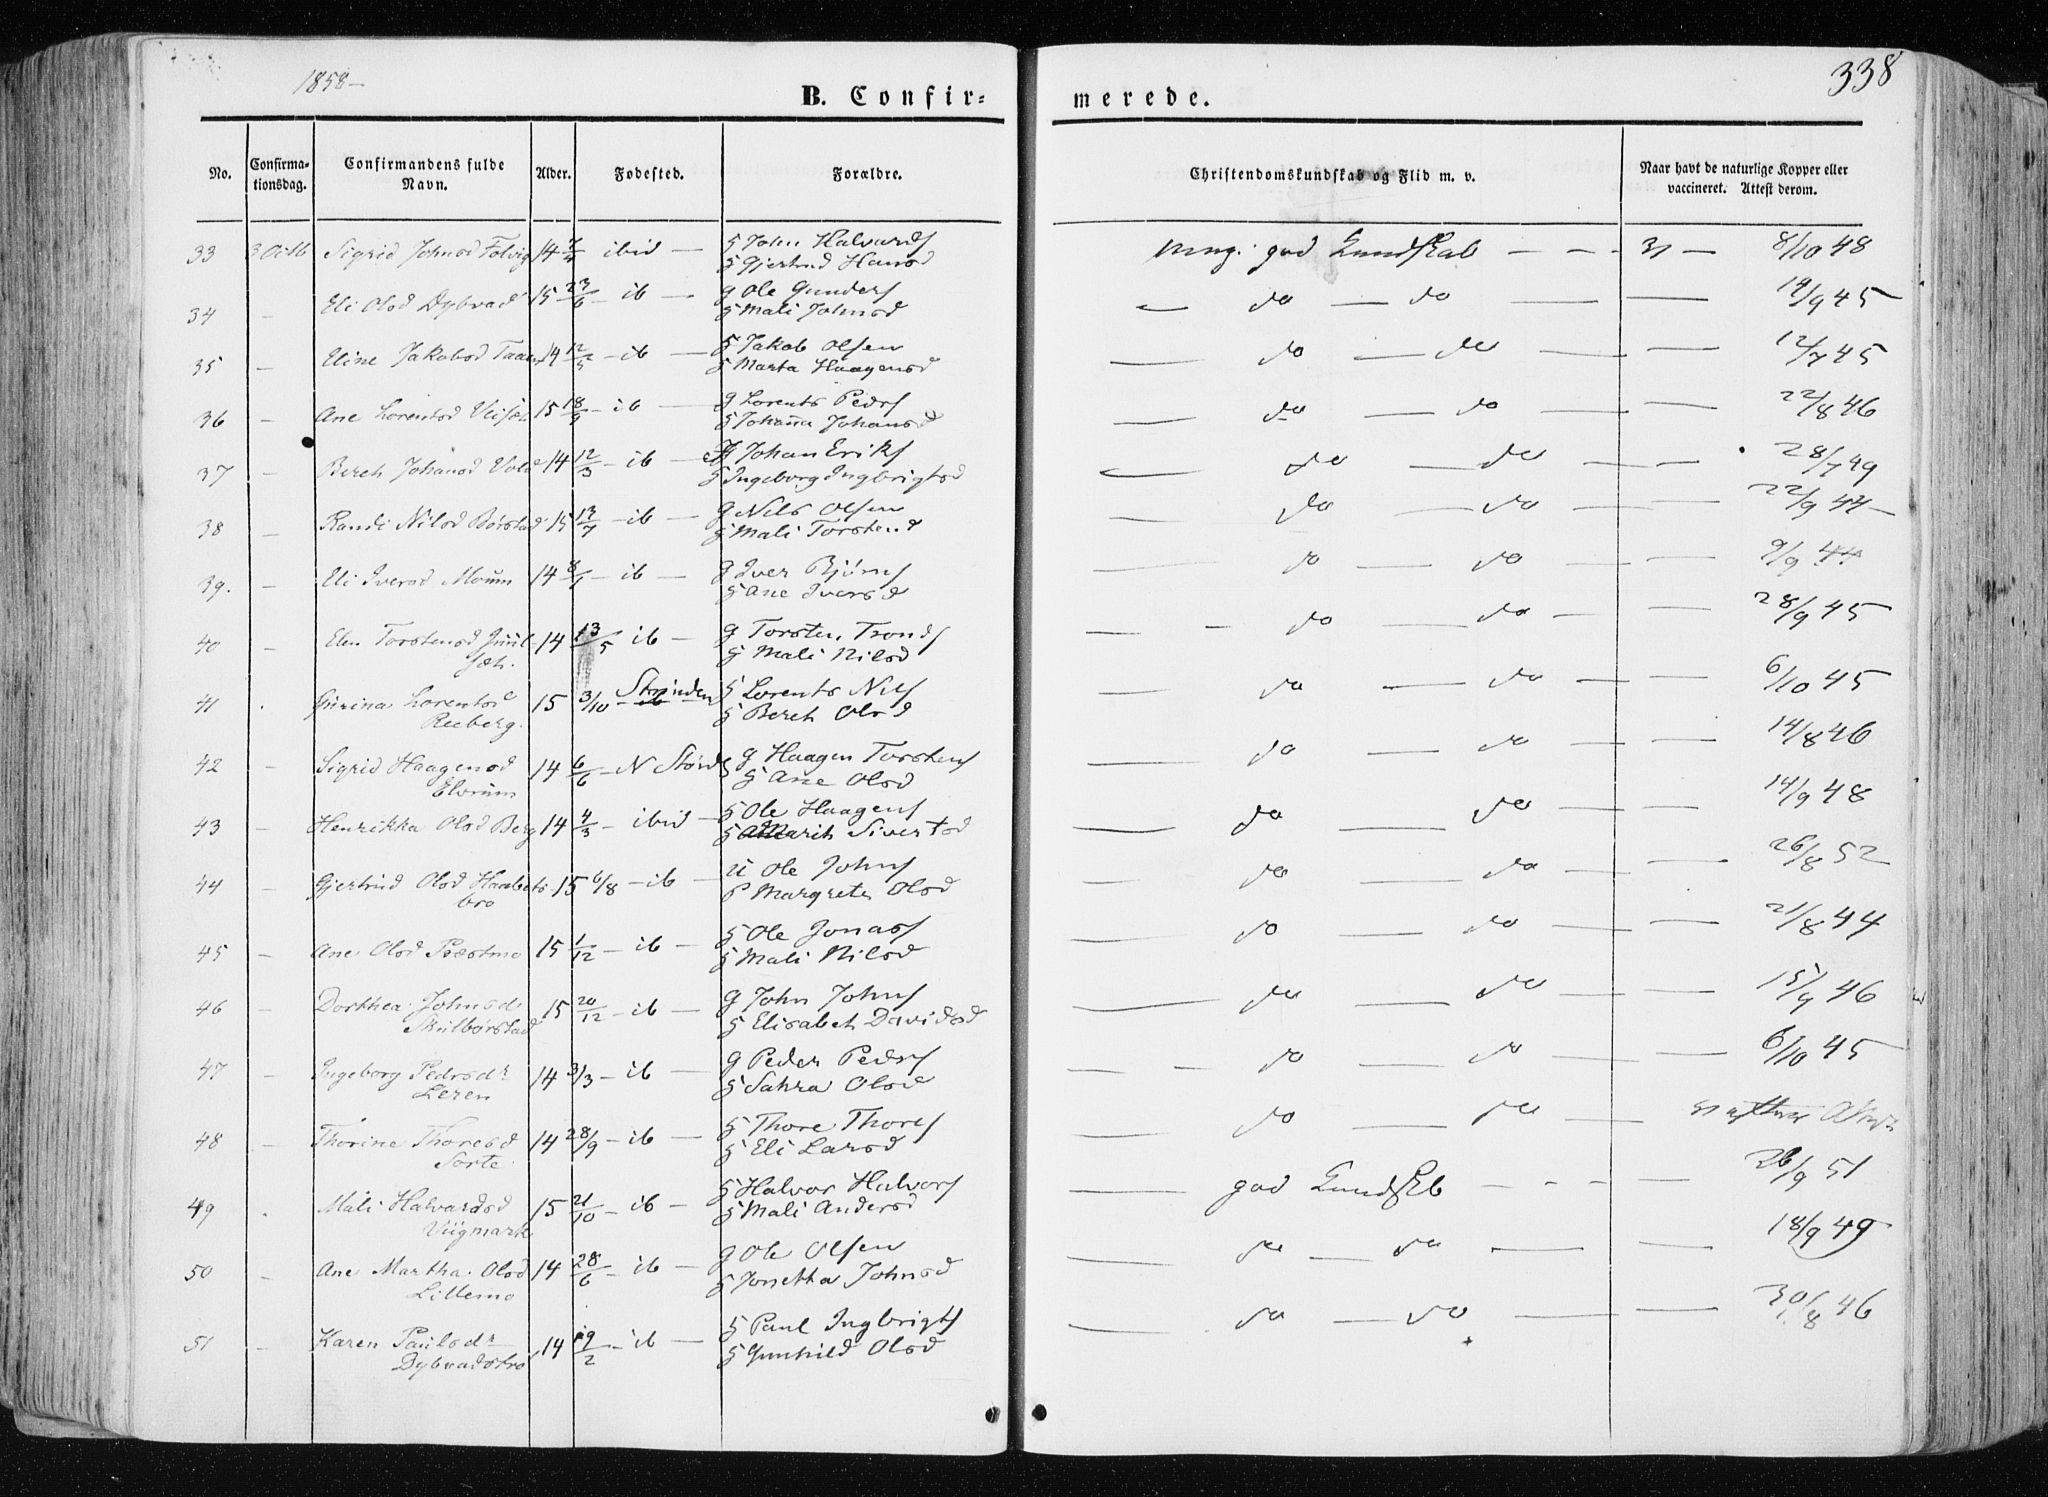 1858–
338
B. Confir-
merede.
No. Confirma-tionsdag. Confirmandens fulde Navn. Alder. Fødested. Forældre. Christendomskundskab og Flid m. v. Naar havt de naturlige Kopper eller vaccineret. Attest derom.
33 3 Octb Sigrid Johnsd 14 ibid — G John Halvards mng. god Kundskab — - - 8/10 48
G Gjertrud Hansd
34 - Eli Olsd Dybvad 15 23/6 - ib - G Ole Gunders do — do 19/9 45
G Mali Johnsd
35 - Eline Jakobsd 14 12/5 - ib — G Jakob Olsen do — do 12/7 45
G Marta Haagensd
36 - Ane Lorentsd 15 18/9 - ib — G Lorents Peders do — do 22/8 46
G Johanna Johansd
37 - Bereth Johansd Vold 14 12/3 - ib - Johan Eriks do — do 28/7 49
G Ingeborg Ingbrigtsd
38 - Randi Nilsd Børstad 15 13/7 - ib — G Nils Olsen do — do 22/9 47
G Mali Torstensd
39. - Eli Iversd Moum 14 8/1 - ib — G Iver Bjørns do — do 9/9 44
G Ane Iversd
40 - Elen Torstensd 14 13/5 ib - G Torsten Tronds do — do 28/9 45
G Mali Nilsd
41 . Gurina Lorentsd 15 3/10 Strinden G Lorents Nils do — do 6/10 45
Reeberg. G Bereth Olsd
42 - Sigrid Haagensd 14 6/6 - N Størd G Haagen Torstens do — do 14/8 46
Elvrum G Ane Olsd
43 - Henrikka Olsd Berg 14 4/3 - ibid - G Ole Haagens do — do 14/9 48
G Marit Sivertsd
44 - Gjertrud Olsd Haabets 15 6/8 - ib - U Ole Johns do — do 26/8 52
bro P Margrete Olsd
45 - Ane Olsd Præstmo 15 1/12 - ib - G Ole Jonas do — do 21/8 44
G Mali Nilsd
46 - Dorthea Johnsd 15 20/12 - ib - G John Johns do — do 15/9 46
Skulbørstad G Elisabeth Davidsd
47 - Ingeborg Pedrsdr 14 3/3 - ib - G Peder Pedrs do — do 6/10 45
Leren G Sahra Olsd
48 - Thorine Thoresd 14 28/9 - ib - G Thore Thores do — do
Sorte G Eli Larsd
49 . Mali Halvardsd 15 21/10 - ib - G Halvor Halvors god Kundskb - - - 26/9 51
Viigmark G Mali Andersd
50 - Ane Martha Olsd 14 28/6 - ib - G Ole Olsen do — do 18/9 49
Lillemo G Jonetta Johnsd
51 - Karen Paulsdr 14 19/2 - ib — G Paul Ingbrigts do — do 30/8 46
Dybvadstrø G Gunhild Olsd